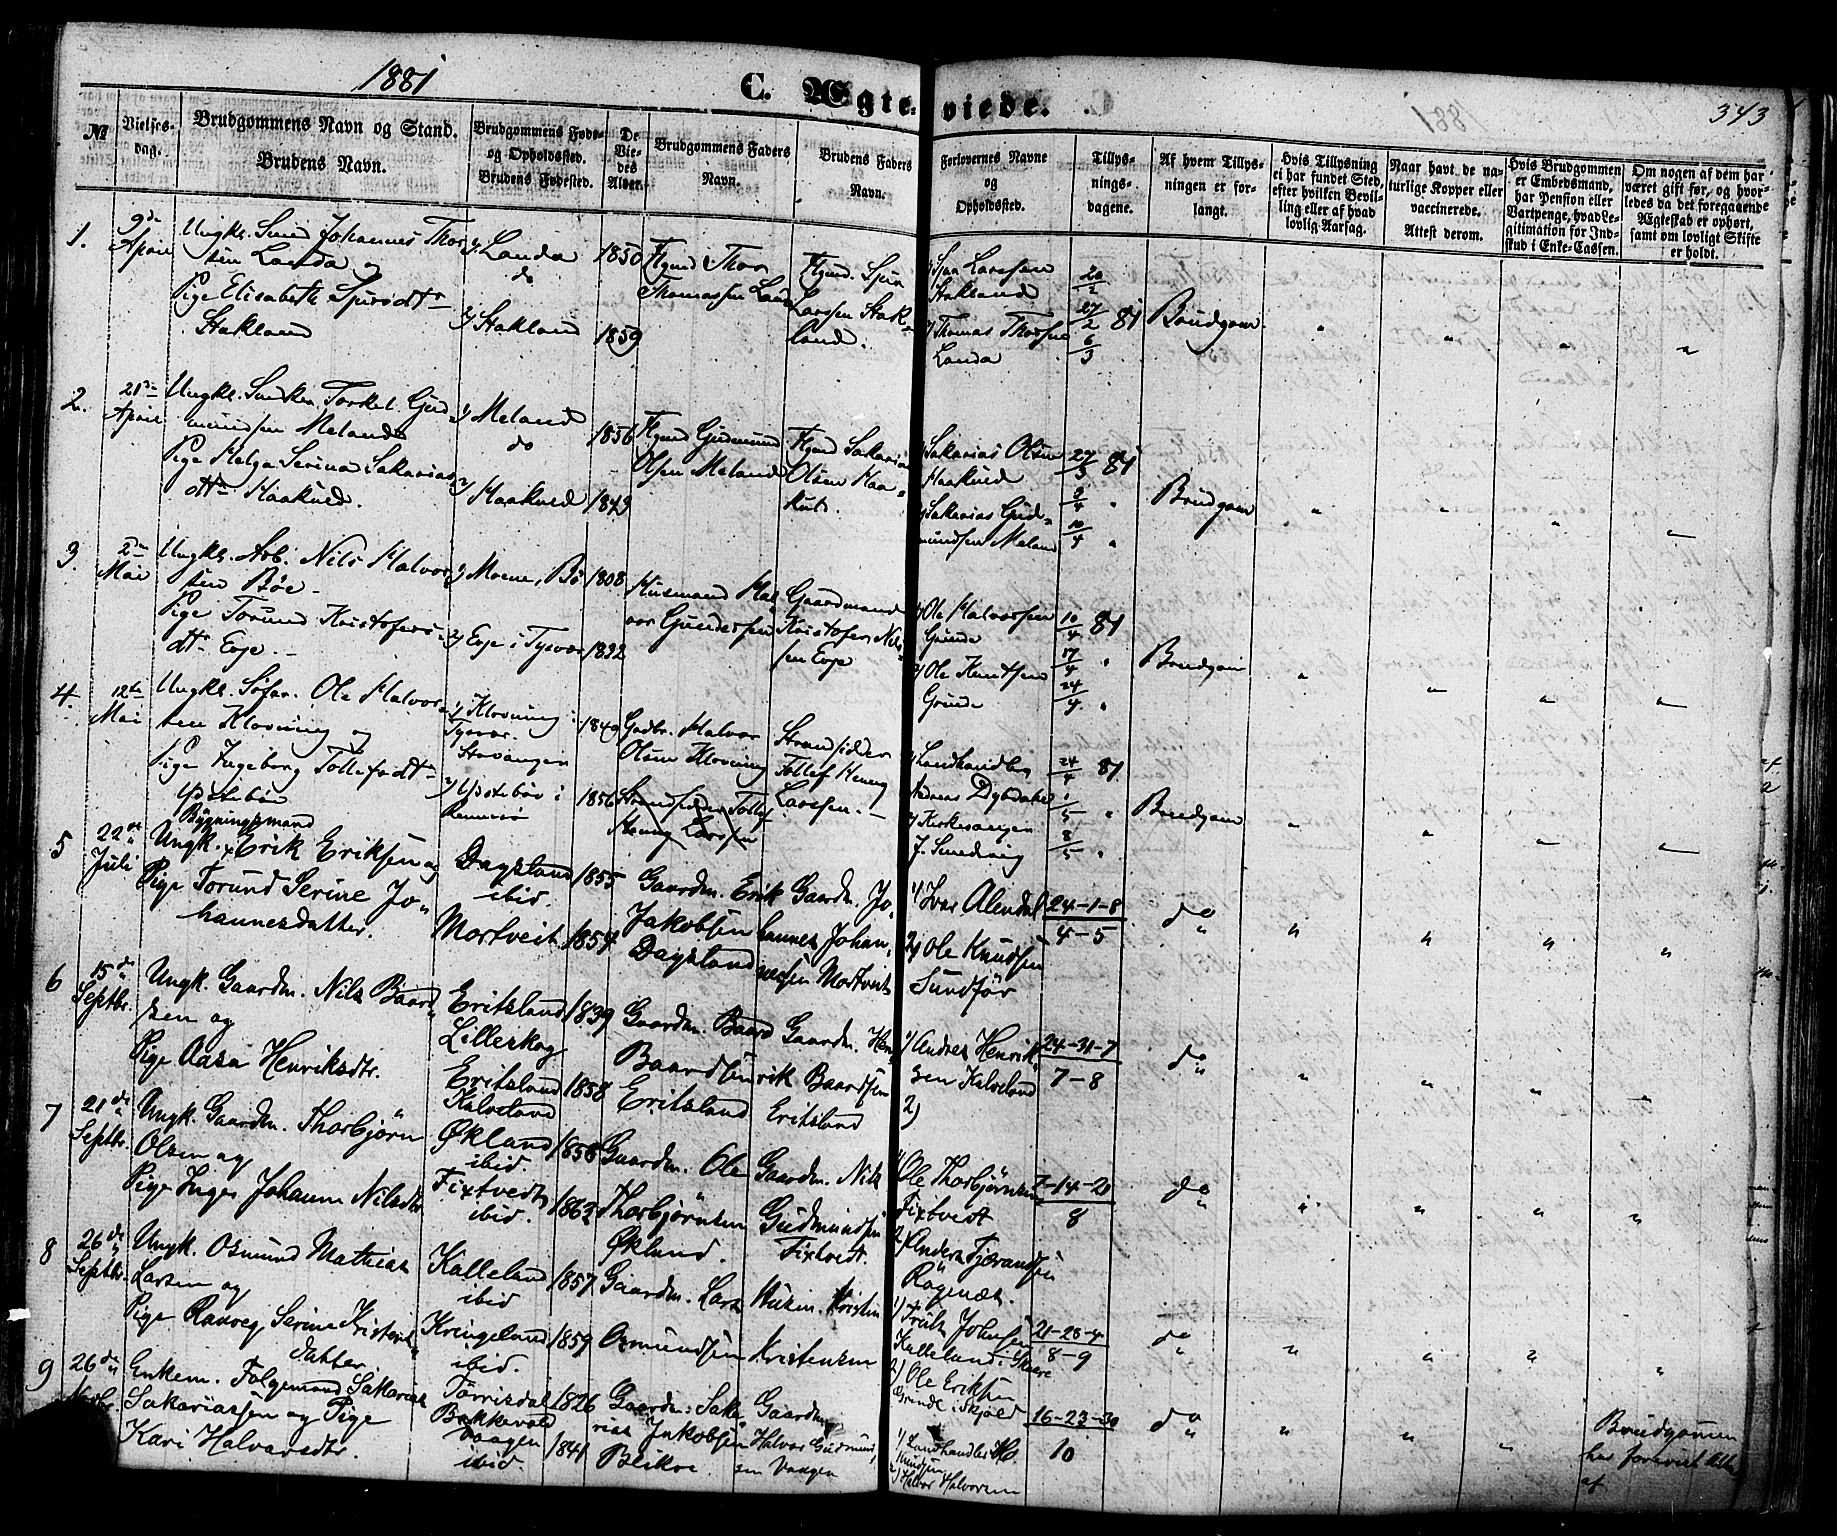 1881
C. Ægteviede.
343
№
Vielses-
dag.
Brudgommens Navn og Stand.
Brudens Navn.
Brudgommens Føde-
og Opholdssted.
Brudens Fødested.
De
Vie-
des
Alder.
Brudgommens Faders
Navn.
Brudens Faders
Navn.
Forlovernes Navne
og
Opholdssted.
Tillys-
nings-
dagene.
Af hvem Tillys-
ningen er for-
langt.
Hvis Tillysning
ei har fundet Sted,
efter hvilken Bevil-
ling eller af hvad
lovlig Aarsag.
Naar havt de na-
turlige Kopper eller
vaccinerede.
Attest derom.
Hvis Brudgommen
er Embedsmand,
har Pension eller
Vartpenge, hvad Le-
gitimation for Ind-
skud i Enke-Cassen.
Om nogen af dem har
været gift før, og hvor-
ledes da det foregaaende
Ægteskab er ophørt,
samt om lovligt Skifte
er holdt.
1.
9de
April
Ungkl. Smed Johannes Thor-
sen Landa og
Pige Elisabeth Sjursdtr
Stakland
1/ Landa
do
2/ Stakland
1850
1859
Flgmd Thor
Thomassen Landa
Flgmd. Sjur
Larssen Stak-
land.
1/ Sjur Larssen
Stakland
2/ Thomas Thorsen
Landa
20/2
27/2 81
6/3
Brudgom
2.
21de
April
Ungkl. Snedker Torkel Gud-
mundsen Meland
Pige Helga Serina Sakarias-
dtr Haakued.
1/ Meland
do
2/ Haakued
1856
1849
Flgmd Gudmund
Olsen Meland
Flgmd Sakarias
Olsen Haa-
kued.
1/ Sakarias Olsen
Haakued
2/ Sakarias Gud-
mundsen Meland
27/3 81
3/4 "
10/4 "
Brudgom
3.
2den
Mai
Ungkl. Arb. Nils Halvor-
sen Bøe
Pige Torund Kristofers-
dtr Evje.
1/ Moene, Bø
2/ Evje i Tysvær
1808
1832
Husmand Hal-
vor Gundersen
Gaardmand
Kristofer Nil-
sen Evje
1/ Ole Halvorsen
Grinde
2/ Ole Knutsen
Grinde
10/4 81
17/4 "
24/4 "
Brudgom
4.
12te
Mai
Ungkl. Søfar. Ole Halvor-
sen Klovning og
Pige Ingeborg Tollefsdtr
Ydstebøe
1/ Klovning i
Tysvær.
Stavanger
2/ Ydstebøe i
Rennesø
1849
1856
Gadbr. Halvor
Olsen Klovning
Strandsidder Tollef
Henng Larssen
Strandsidder
Tollef Henng
Larssen.
1/ Landhandler
Andreas Dybdahl
2/ Kirkesanger
J. Smedvig
24/4 81
1/5 "
8/5 "
Brudgom
5
22de
Juli
Bygningsmand
Ungk. Erik Eriksen og
Pige Torund Serine Jo-
hannesdatter.
Dagsland
ibid.
Mortveit
1855
1854
Gaardm. Erik
Jakobsen
Dagsland
Gaardm. Jo-
hannes Johan-
nesen Mortveit
1/ Ivar Alendal
2/ Ole Knudsen
Sundfør
24-1-8
4-5
do
6
15de
Septbr.
Ungk. Gaardm. Nils Baard-
sen og
Pige Aasa Henriksdtr.
Eritsland
Lilleskog
Eritsland
Kalveland
1839
1858
Gaardm. Baard
Baardsen
Eritsland
Gaardm. Hen-
rik Baardsen
Eritsland
1/ Andreas Henrik-
sen Kalveland
2)
24-31-7
7-8
do
7
21de
Septbr.
Ungk. Gaardm. Thorbjørn
Olsen og
Pige Inger Johanne Nilsdtr
Økland
ibid.
Fixtvedt
ibid.
1858
1863
Gaardm. Ole
Thorbjørnsen
Økland.
Gaardm. Nils
Gudmundsen
Fixtvedt.
1/ Ole Thorbjørnsen
Fixtvedt
2/ Anders Tjærandsen
Ragenæs.
7-14-21
8
do
8
26de
Septbr.
Ungk. Osmund Mathias
Larsen og
Pige Ranveg Serine Kristens-
datter
Kalleland
ibid
Kringeland
ibid.
1857
1859
Gaardm. Lars
Osmundsen
Husm. Kristen
Kristensen
1/ Frits Johnsen
Kalleland i Skaare
2) Ole Eriksen
Grinde i Skjold
21-28-4
8-9
do
9
26de
Novbr.
Enkem. Folgemand Sakarias
Sakariassen og Pige
Kari Halvorsdtr.
Torrisdal
Bakkevold
Vaagen
ibid.
1826
1841
Gaardm: Saka-
rias Jakobsen
Bleikve.
Gaardm
Halvor Gudmund-
sen Vaagen
1/ Landhandler H.
Knudsen
2/ Halvor Halvorsen
16-23-30
10
do
Brudgommen
har foreviist Attest
af